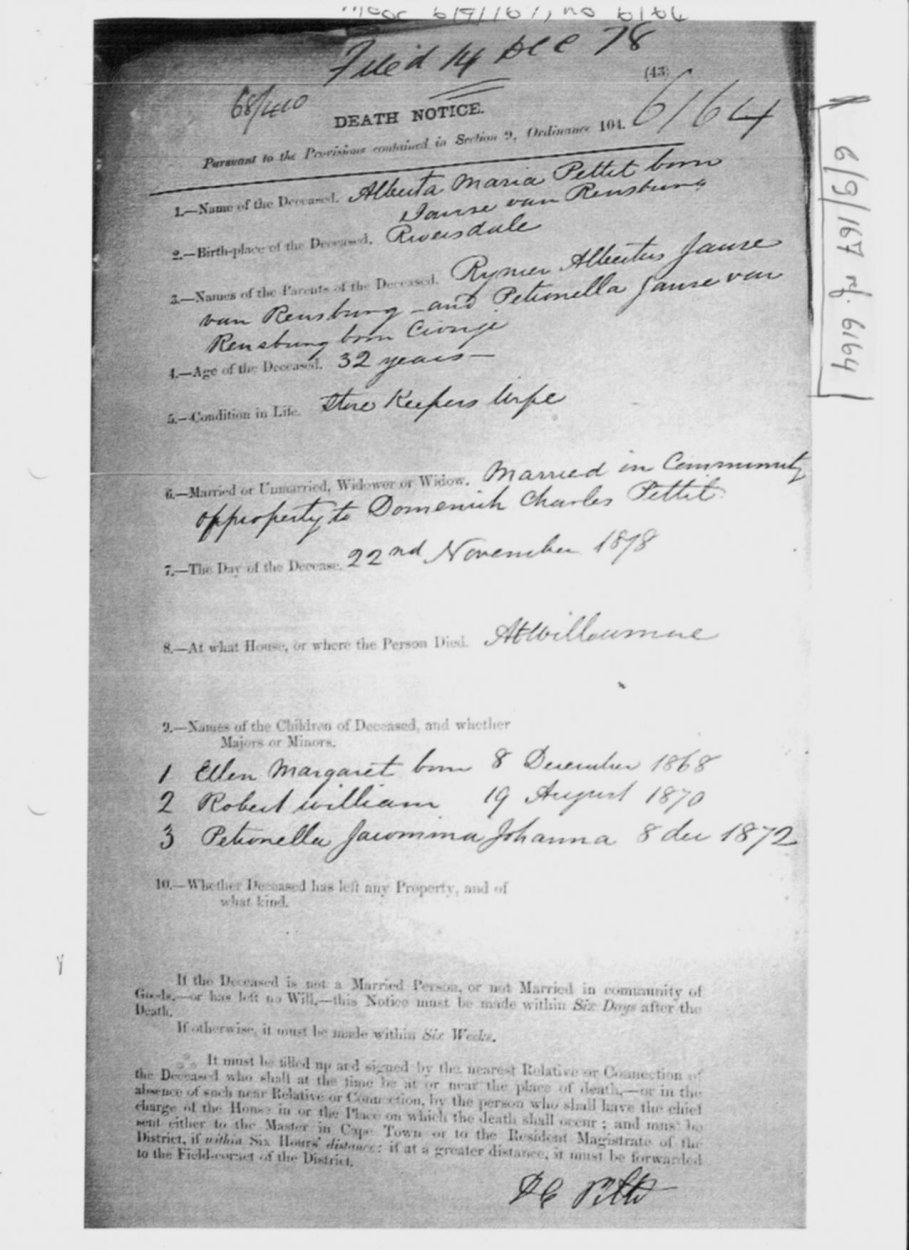 Filed 14 Dec 78
(43)
68/440
6164
DEATH NOTICE.
Pursuant to the Provisions contained in Section 9, Ordinance 104.
1.—Name of the Deceased. Alberta Maria Pettit born
Janse van Rensburg
2.—Birth-place of the Deceased. Riversdale
3.—Names of the Parents of the Deceased. Rynier Albertus Janse
van Rensburg and Petronella Janse van
Rensburg born
4.—Age of the Deceased. 32 years—
5.—Condition in Life. Store Keepers Wife
6.—Married or Unmarried, Widower or Widow. Married in Community
of property to Domenich Charles Pettit
7.—The Day of the Decease. 22nd November 1878
8.—At what House, or where the Person Died. At Willowmore
9.—Names of the Children of Deceased, and whether
Majors or Minors.
1 Ellen Margaret born 8 December 1868
2 Robert William 19 August 1870
3 Petronella Jacomina Johanna 8 dec 1872
10.—Whether Deceased has left any Property, and of
what kind.
If the Deceased is not a Married Person, or not Married in community of
Goods,—or has left no Will,—this Notice must be made within Six Days after the
Death.
If otherwise, it must be made within Six Weeks.
It must be filled up and signed by the nearest Relative or Connection of
the Deceased who shall at the time be at or near the place of death,—or in the
absence of such near Relative or Connection, by the person who shall have the chief
charge of the House in or the Place on which the death shall occur; and must be
sent either to the Master in Cape Town or to the Resident Magistrate of the
District, if within Six Hours' distance: if at a greater distance, it must be forwarded
to the Field-cornet of the District.
D C Pettit
6/9/167 rf. 6164